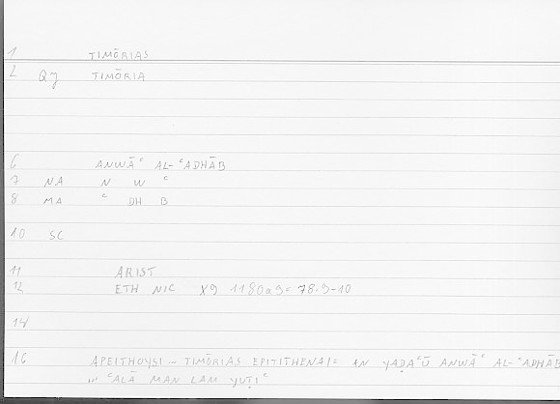 1 TIMŌRIAS
2 Qy TIMŌRIA
6 ANWĀʿ AL-ʿADHĀB
7 NA N W ʿ
8 MA ʿ DH B
10 SC
11 ARIST
12 ETH NIC X9 1180a9= 78.9-10
14
16 APEITHOYSI – TIMŌRIAS EPITITHENAI= AN YAḌAʿŪ ANWĀʿ AL-ʿADHĀB
... ʿALĀ MAN LAM YUṬIʿ